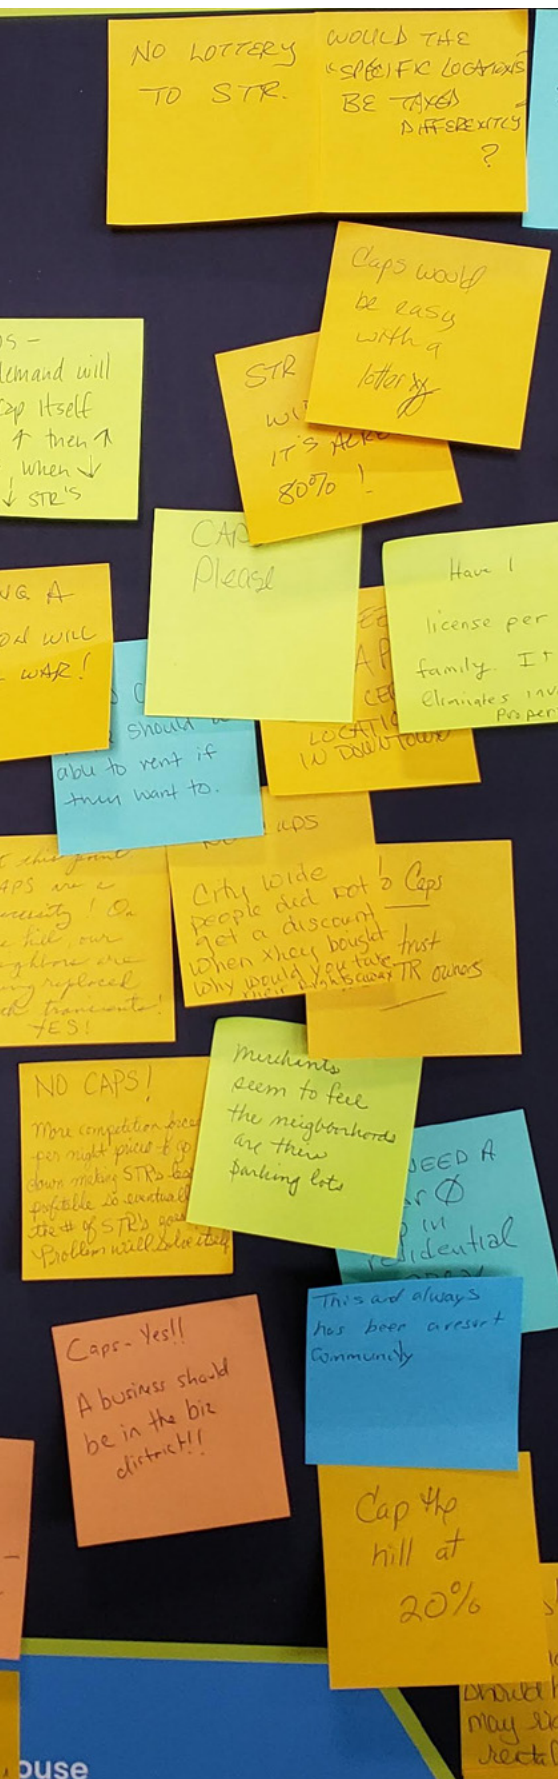 NO LOTTERY
TO STR.
WOULD THE
"SPECIFIC LOCATIONS"
BE TAXED
DIFFERENTLY
?
Caps would
be easy
with a
lottery
STR
IT'S
80% !
demand will
Cap Itself
↑ then ↑
when ↓
↓ STR'S
CAPS
Please
Have 1
license per
family. It
eliminates
A
WILL
WAR!
should
able to rent if
them want to.
LOCATIO
IN DOWNTOWN
this point
CAPS are a
necessity! On
hill, our
neighbors are
being replaced
transients!
YES!
City wide
people did not
get a discount
when they bought
why would you take
their rights away
Caps
trust
STR owners
NO CAPS!
More competition forces
per night prices to go
down making STRs less
profitable so eventually
the # of STRs goes
Problem will solve itself
Merchants
seem to feel
the neighborhoods
are there
parking lots
NEED A
Ø
in
residential
This and always
has been a resort
Community
Caps - Yes!!
A business should
be in the biz
district!!
Cap the
hill at
20%
should
may
rental
ouse